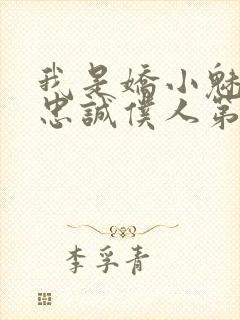 我是嬌小魅
忠誠僕人第
李孚青